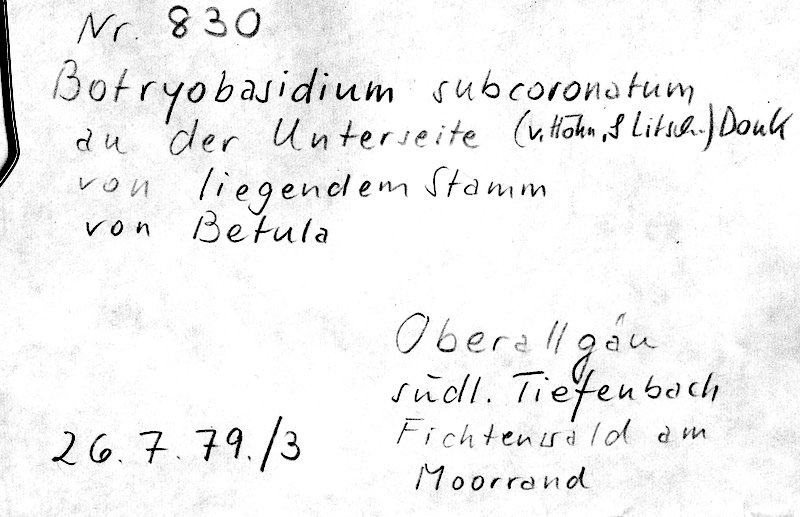 Nr. 830
Botryobasidium subcoronatum
an der Unterseite (v. Höhn. & Litsch.) Donk
von liegendem Stamm
von Betula
Oberallgäu
südl. Tiefenbach
Fichtenwald am
Moorrand
26.7.79./3